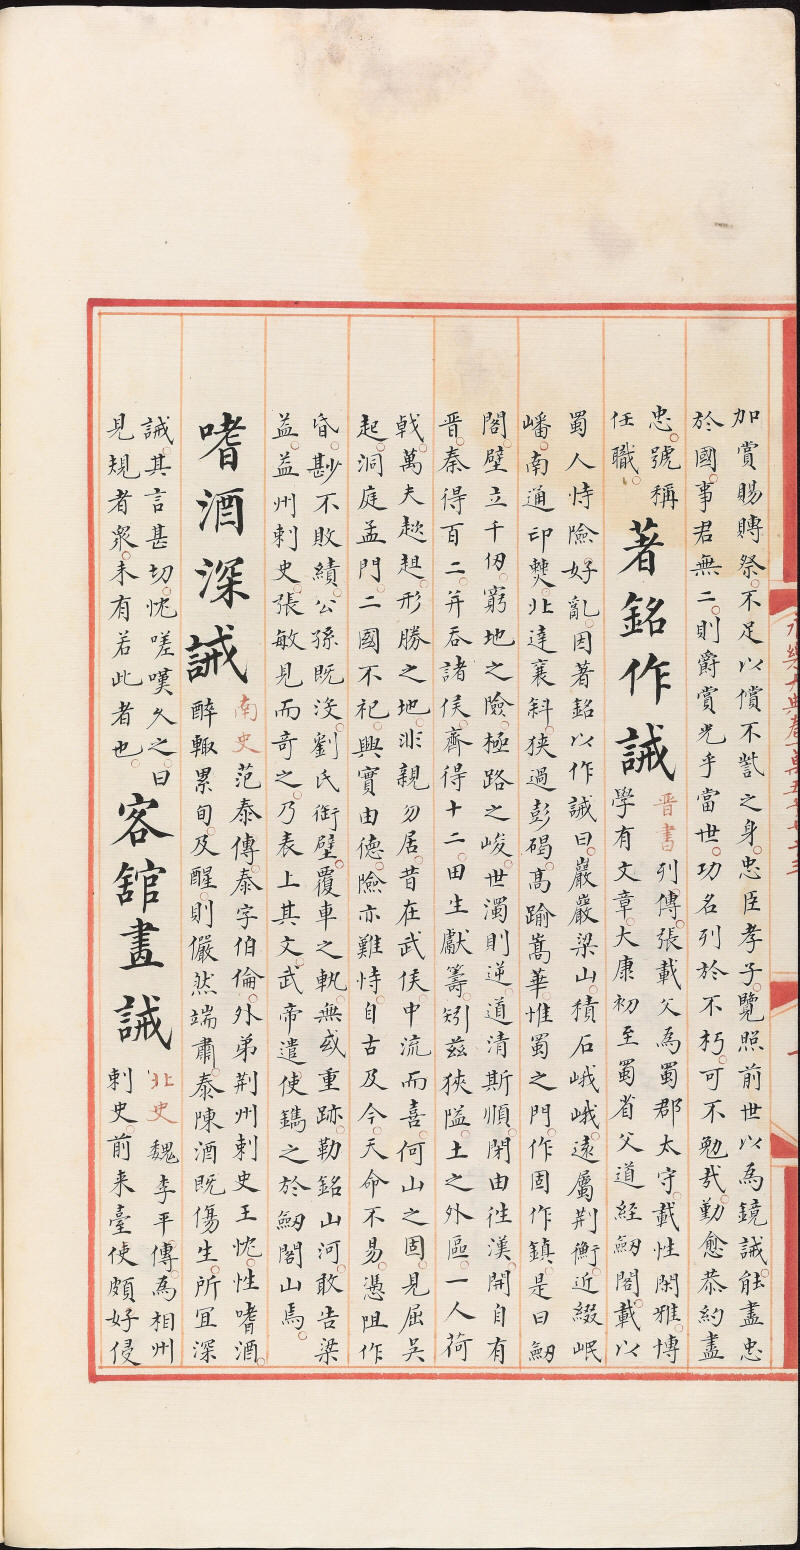 加賞賜賻祭。不足以償不訾之身。忠臣孝子。覽照前世以為鏡誡。能盡忠
於國。事君無二。則爵賞光乎當世。功名列於不朽。可不勉哉。勤愈恭約盡
忠。號稱
任職。
著銘作誡
晉書列傳。張載父為蜀郡太守。載性閑雅。博
學有文章。太康初至蜀省父。道經劒閣。載以
蜀人恃險。好亂。因著銘以作誡曰。巖巖梁山。積石峨峨。遠屬荆衡。近綴岷
嶓。南通卭僰。北達襃斜。狹過彭碣。高踰嵩華。惟蜀之門。作固作鎮。是曰劒
閣。壁立千仞。窮地之險。極路之峻。世濁則逆。道清斯順。閉由往漢。開自有
晉。秦得百二。并吞諸侯。齊得十二。田生獻籌。矧茲狹隘。土之外區。一人荷
戟。萬夫趑趄。形勝之地。非親勿居。昔在武侯。中流而喜。何山之固。見屈吳
起。洞庭孟門。二國不祀。興實由德。險亦難恃。自古及今。天命不易。憑阻作
昏。尠不敗績。公孫既沒。劉氏銜壁。覆車之軌。無或重跡。勒銘山河。敢告梁
益。益州刺史。張敏見而竒之。乃表上其文。武帝遣使鐫之於劒閣山焉。
嗜酒深誡
南史范泰傳。泰字伯倫。外弟荆州刺史王忱。性嗜酒。
醉輙累旬。及醒。則儼然端肅。泰陳酒既傷生。所宜深
誡。其言甚切。忱嗟嘆久之。曰
見規者衆。未有若此者也。
客館畫誡
北史魏李平傳。為相州
刺史。前来臺使頗好侵